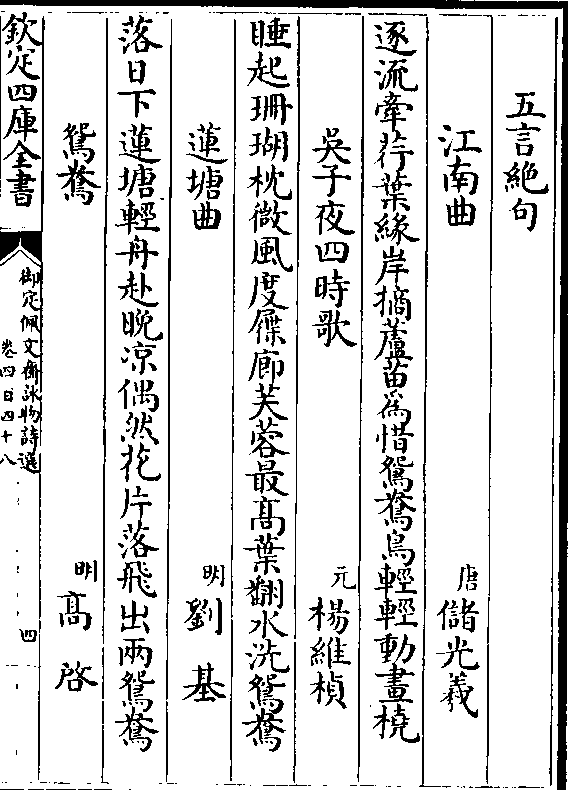 五言絶句
江南曲 唐 儲光羲
逐流牽荇葉緣岸摘蘆苗為惜鴛鴦鳥輕輕動畫橈
吳子夜四時歌 元 楊維楨
睡起珊瑚枕微風度屧廊芙蓉最髙葉翻水洗鴛鴦
蓮塘曲 明 劉基
落日下蓮塘輕舟赴晚凉偶然花片落飛出兩鴛鴦
鴛鴦 明 髙啓
欽定四庫全書
御定佩文齋詠物詩選
卷四百四十八
四